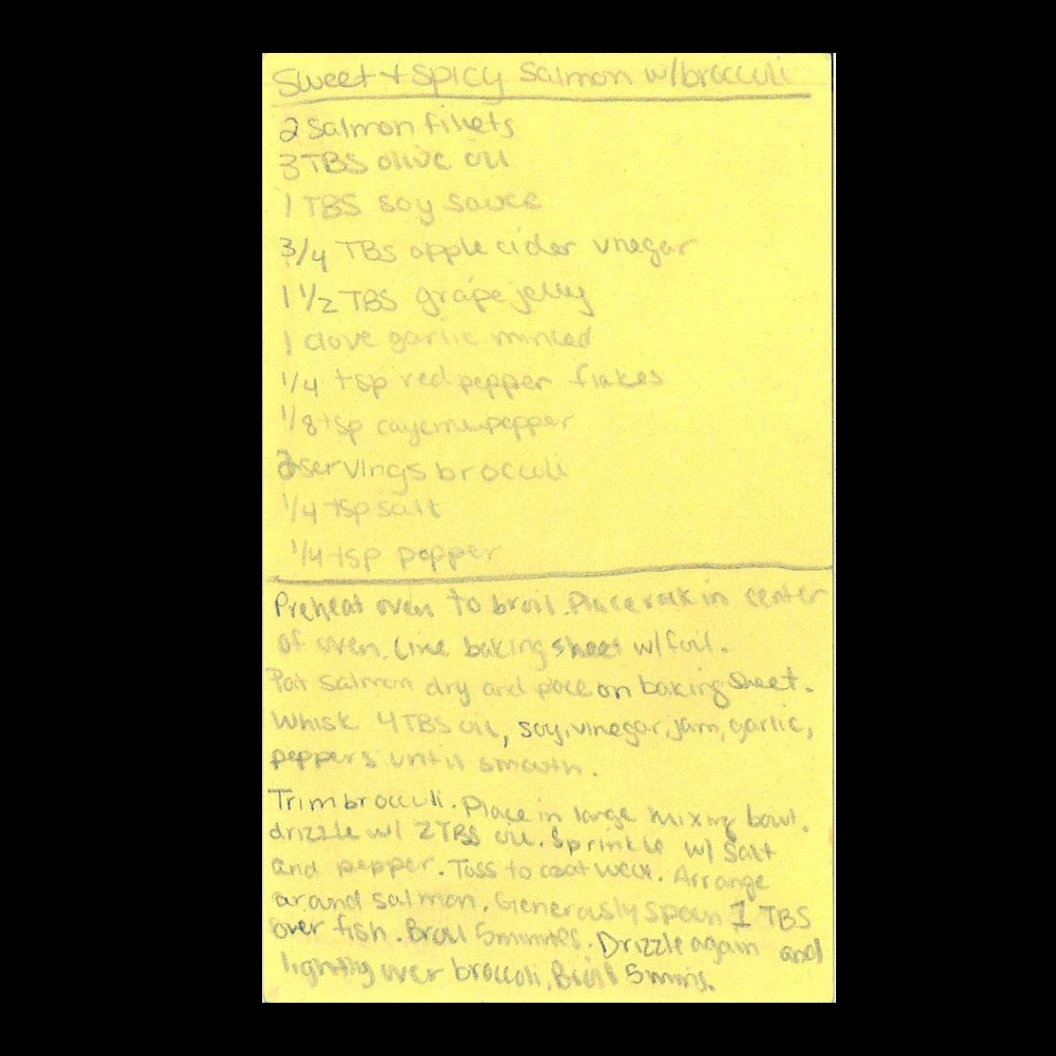 Sweet + Spicy Salmon w/broccoli
2 salmon fillets
3 TBS olive oil
1 TBS soy sauce
3/4 TBS apple cider vnegar
1 1/2 TBS grape jelly
1 clove garlic minced
1/4 tsp red pepper flakes
1/8 tsp cayenne pepper
2 servings broccoli
1/4 tsp salt
1/4 tsp pepper
Preheat oven to broil. Place rack in center
of oven. Line baking sheet w/foil.
Pat salmon dry and place on baking sheet.
Whisk 4 TBS oil, soy, vinegar, jam, garlic,
peppers until smooth.
Trim broccoli. Place in large mixing bowl.
drizzle w/ 2 TBS oil. Sprinkle w/ Salt
and pepper. Toss to coat well. Arrange
around salmon. Generously spoon 1 TBS
over fish. Broil 5 minutes. Drizzle again and
lightly over broccoli. Broil 5 mins.